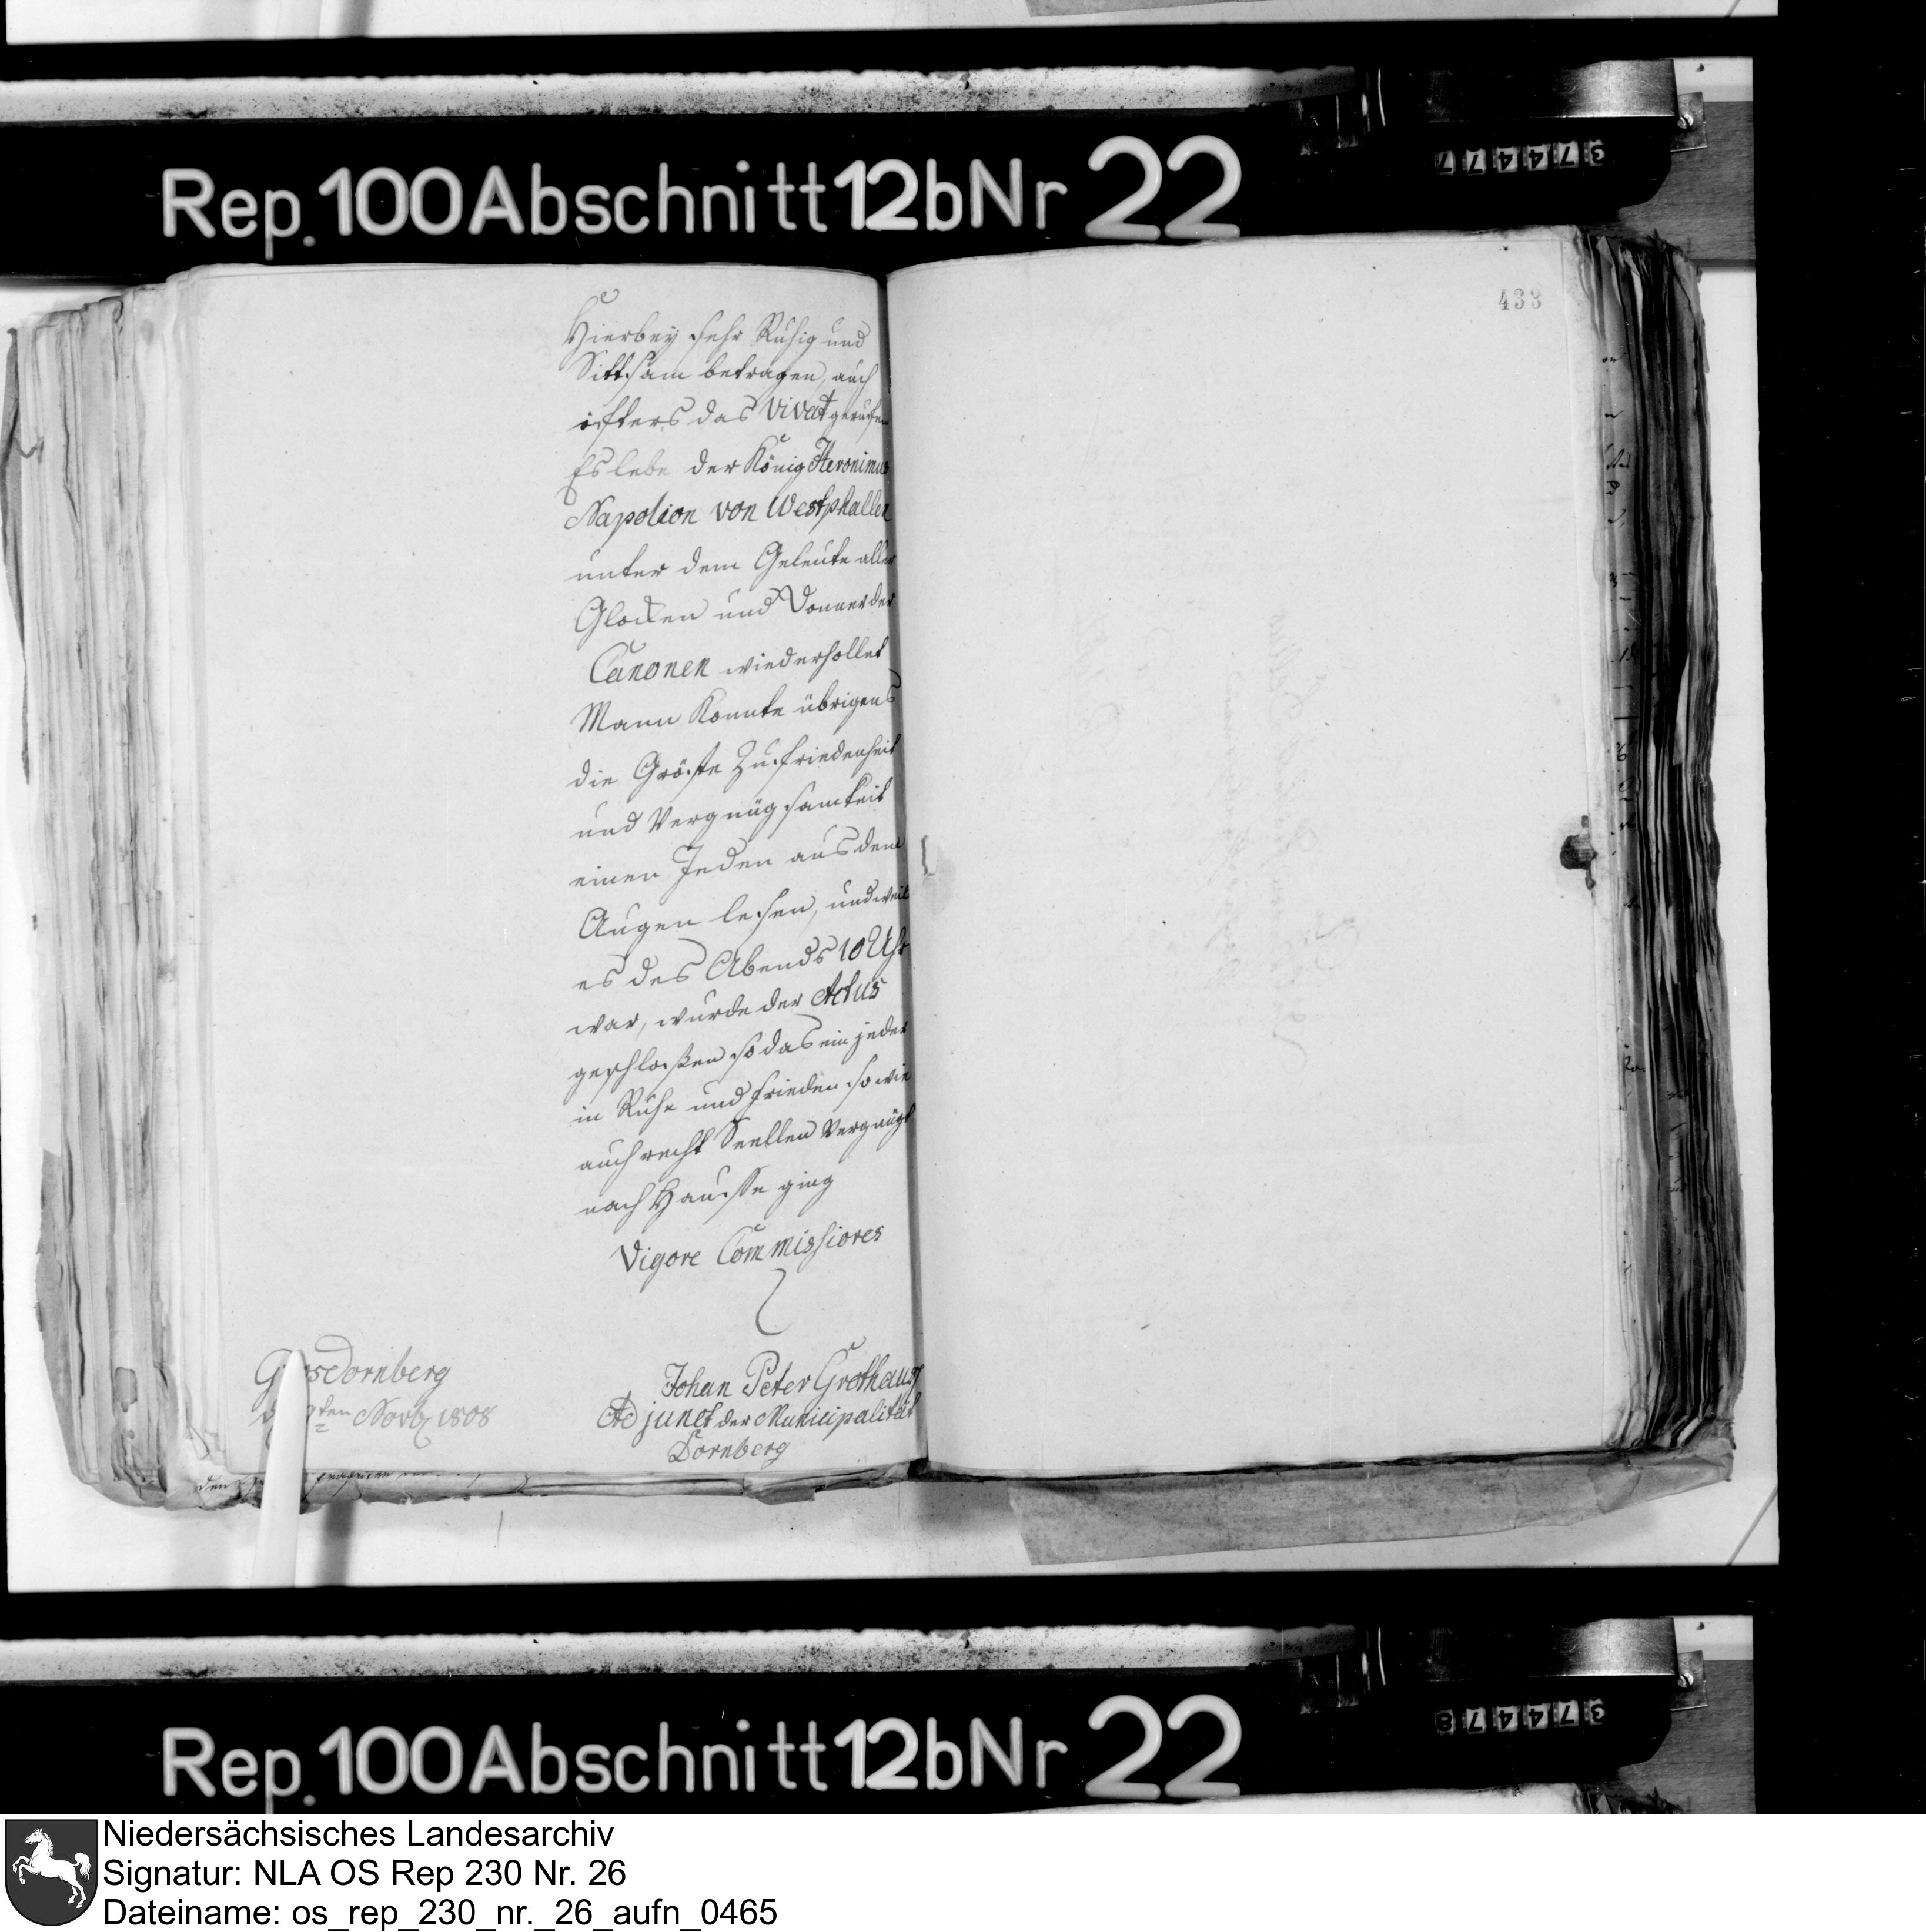 Rep. 100 Abschnitt 12b Nr 22
374477
433
Hierbey sehr Ruhig und
Sittsam betragen, auch
öfters das Vivat gerufen
Es lebe der König Heronimus
Napolion von Westphallen
unter dem Geleute aller
Glocken und Donner der
Canonen wiederhollet
Mann Konnte übrigens
die Gröste Zufriedenheit
und Vergnügsamkeit
einen Jeden aus dem
Augen lesen, und weil
es des Abends 10 Uhr
war, wurde der Actus
geschloßen so das ein jeder
in Ruhe und frieden so wie
auch recht Seellen Vergnügt
nach Hausse ging
Vigore Commissiores
GrosDornberg
ten Novb 1808
Johan Peter Grothaus
Adjunct der Municipalität
Dornberg
374478
Rep. 100 Abschnitt 12b Nr 22
Niedersächsisches Landesarchiv
Signatur: NLA OS Rep 230 Nr. 26
Dateiname: os_rep_230_nr._26_aufn_0465